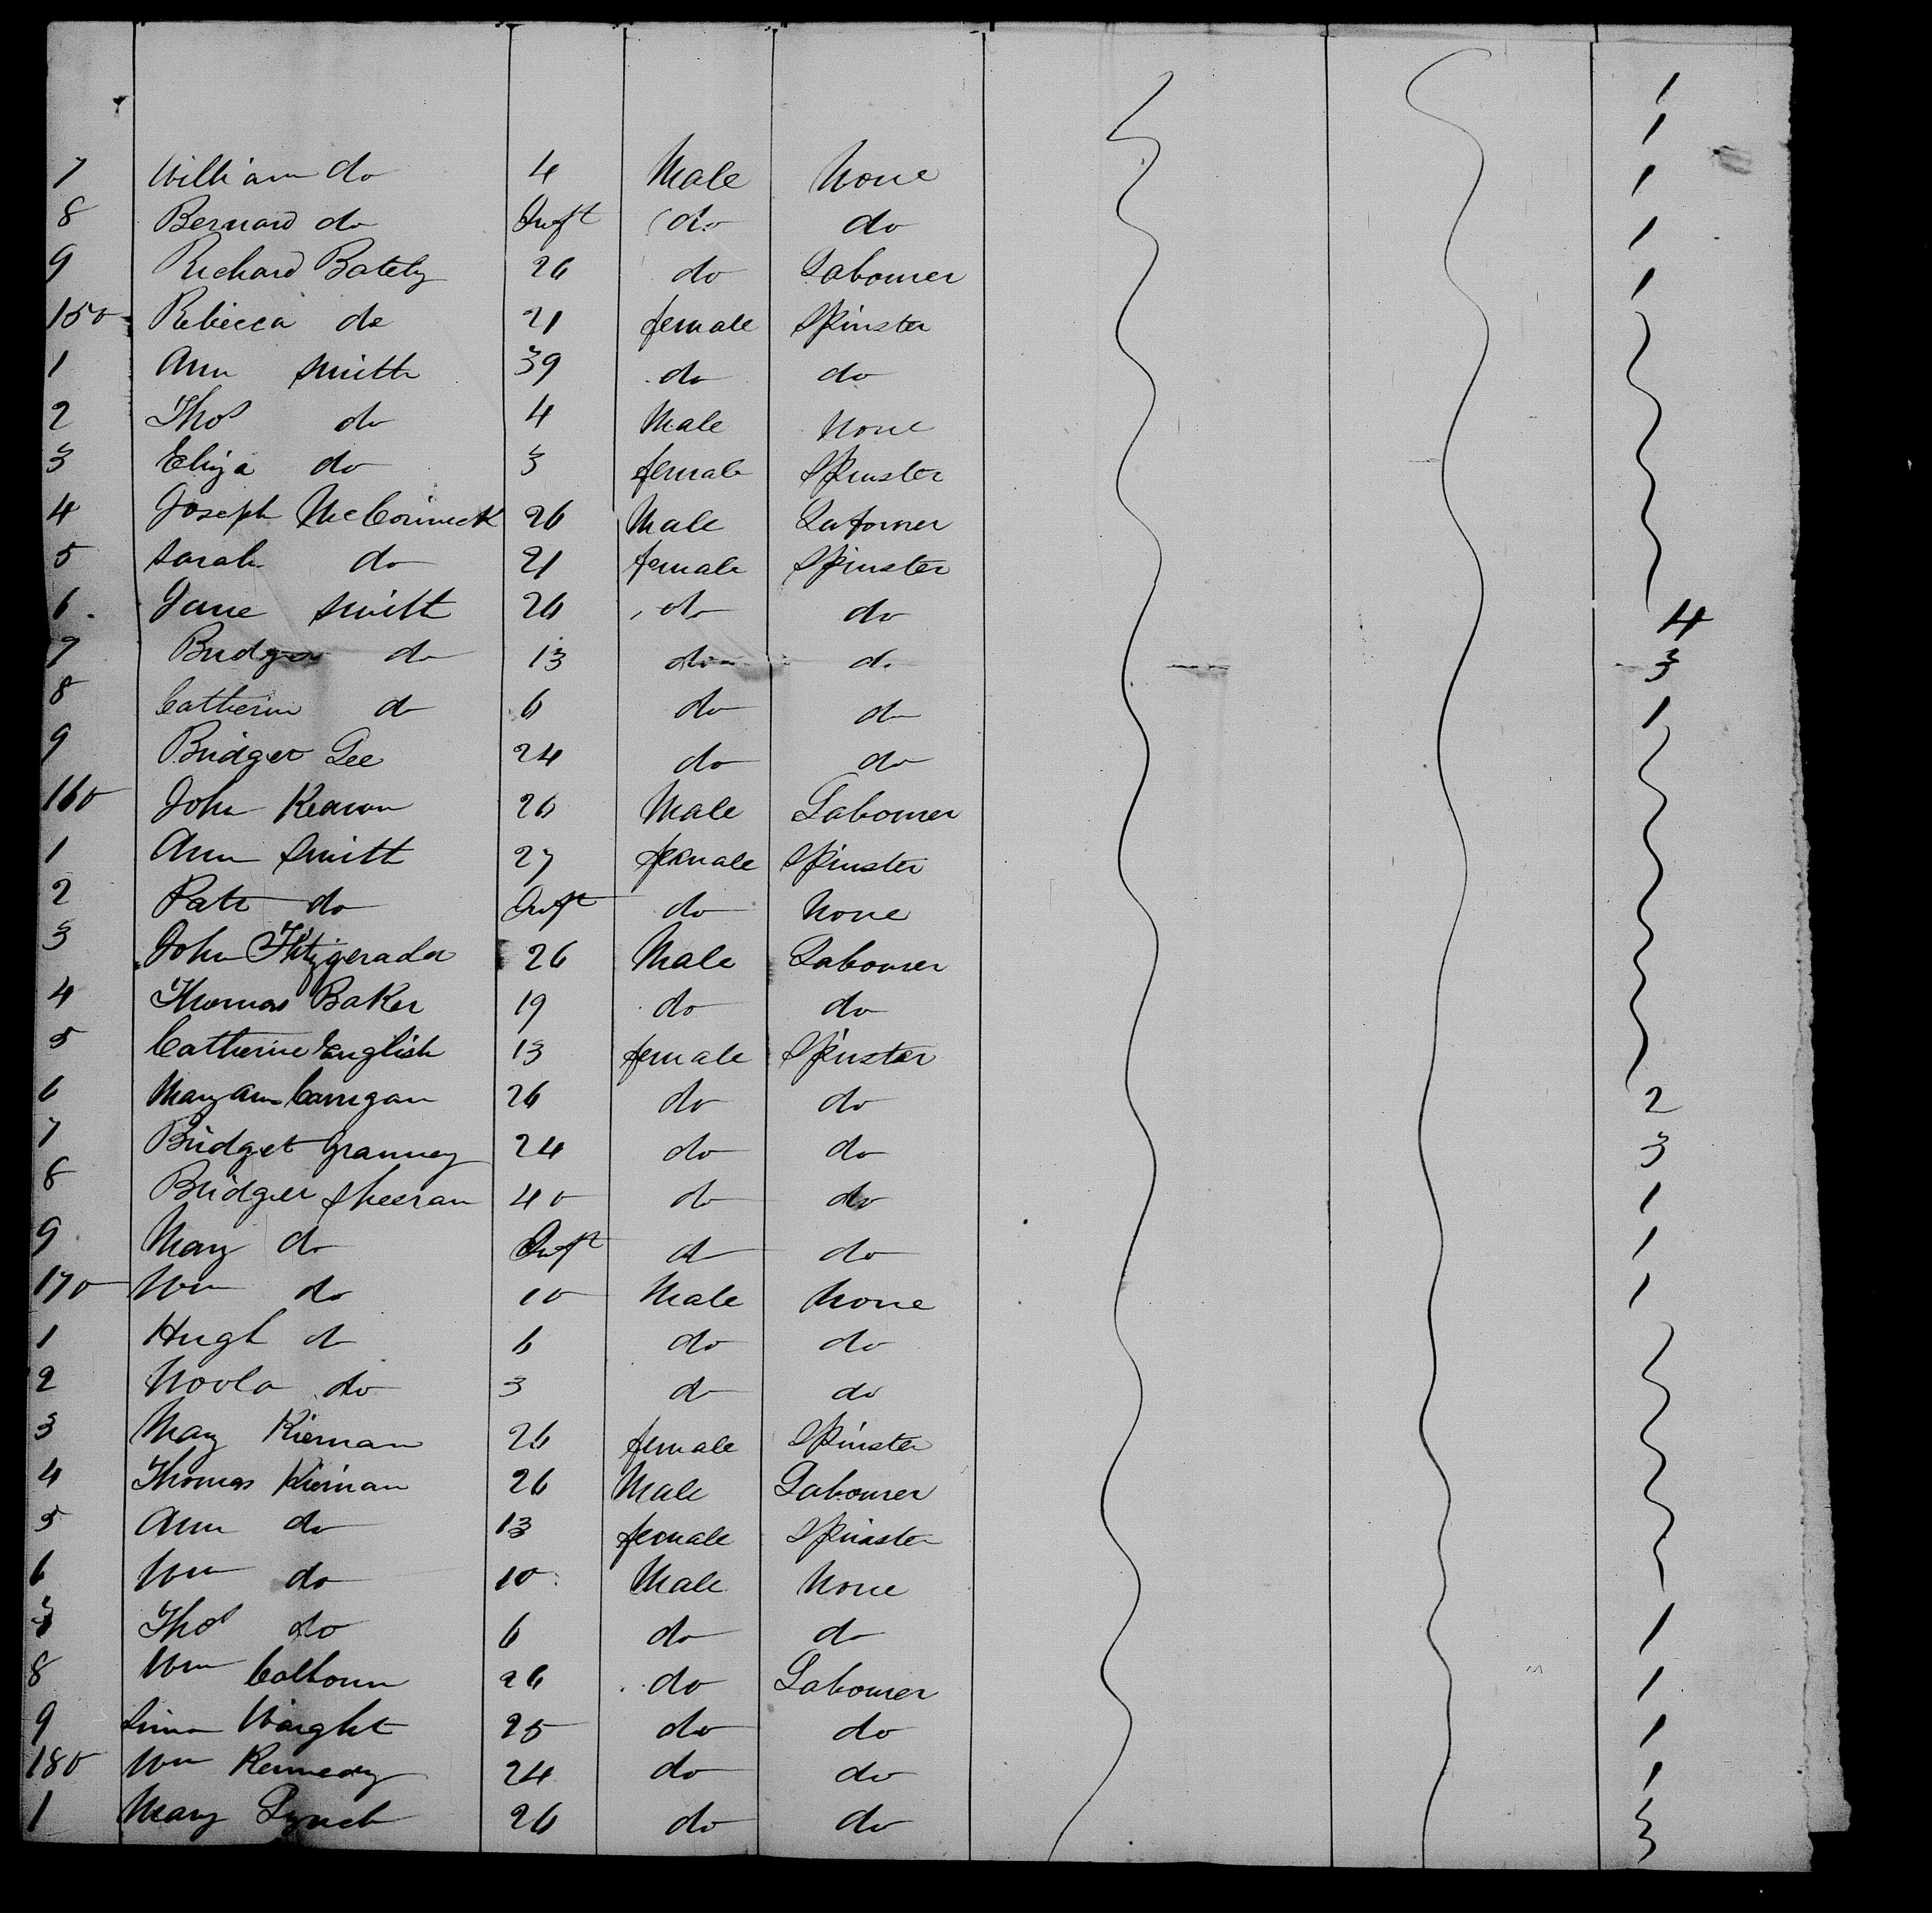 1
1
7 William do 4 Male None 1
8 Bernard do Inft do do 1
9 Richard Bately 26 do Labourer 1
150 Rebecca do 21 female Spinster
1 Ann Smith 39 do do
2 Thos do 4 Male None
3 Eliza do 3 female Spinster
4 Joseph McCormick 26 Male Labourer
5 Sarah do 21 female Spinster
6 Jane Smith 26 do do 4
7 Bridget do 13 do do 3
8 Catherine do 6 do do 1
9 Bridget Lee 24 do do
160 John Kearon 26 Male Labourer
1 Ann Smith 27 female Spinster
2 Pat do Inft do None
3 John Fitzgerald 26 Male Labourer
4 Thomas Baker 19 do do
5 Catherine English 13 female Spinster
6 Mary Ann Carrigan 26 do do 2
7 Bridget Granney 24 do do 3
8 Bridget Sheeran 40 do do 1
9 Mary do Inft do do 1
170 Wm do 10 Male None 1
1 Hugh do 6 do do
2 Noola do 3 do do
3 Mary Kiernan 26 female Spinster
4 Thomas Kiernan 26 Male Labourer
5 Ann do 13 female Spinster
6 Wm do 10 Male None
7 Thos do 6 do do 1
8 Wm Calhoun 26 do Labourer 1
9 Waight 25 do do 1
180 Wm Kennedy 24 do do 1
1 Mary Lynch 26 do do 3